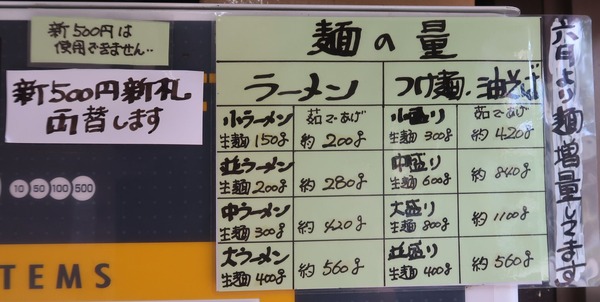 新500円は
使用できません‥
新500円新札
両替します
10 50 100 500
TEMS
麺の量
ラーメン
つけ麺、油そば
小ラーメン
生麺150g
茹であげ
約200g
小盛り
生麺300g
茹であげ
約420g
並ラーメン
生麺200g
約280g
中盛り
生麺600g
約840g
中ラーメン
生麺300g
約420g
大盛り
生麺800g
約1100g
大ラーメン
生麺400g
約560g
並盛り
生麺400g
約560g
六月より麺増量してます